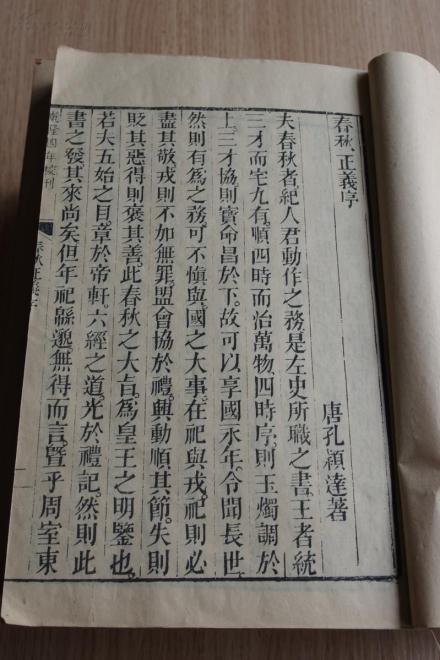 春秋正義序
唐孔穎達著
夫春秋者紀人君動作之務是左史所職之書王者統
三才而宅九有順四時而治萬物四時序則玉燭調於
上三才協則寶命昌於下故可以享國永年令聞長世
然則有為之務可不慎與國之大事在祀與戎祀則必
盡其敬戎則不加無罪盟會協於禮興動順其節失則
貶其惡得則褒其善此春秋之大旨為皇王之明鑒也
若夫五始之目章於帝軒六經之道光於禮記然則此
書之發其來尚矣但年祀緜邈無得而言暨乎周室東
乾隆四年校刊
春秋正義序